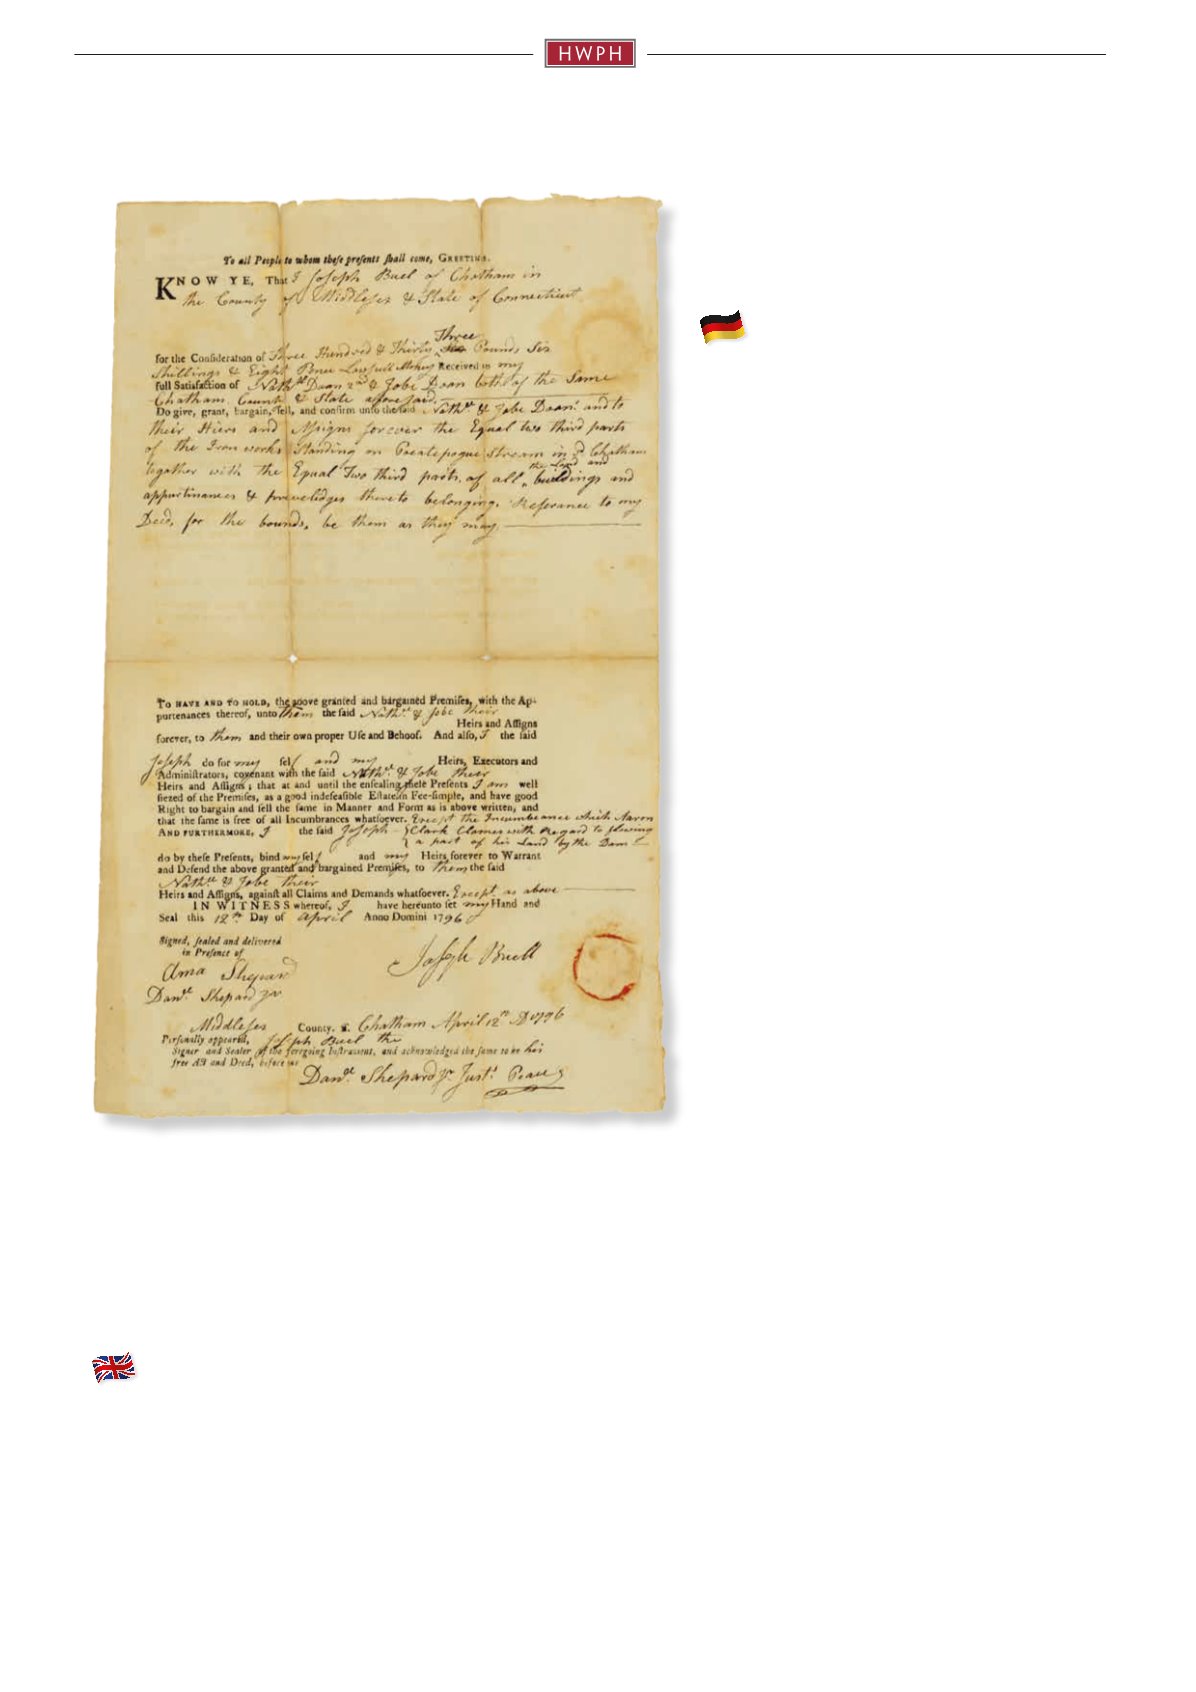 HWPH
To all People to whom theſe preſents ſhall come, GREETING.
KNOW YE, That I Joſeph Buel of Chatham in
the County of Middleſex & State of Connecticut
Three
for the Conſideration of Three Hundred & Thirty Pounds Six
Shillings & Eight Pence Lawfull Money Received in my
full Satisfaction of Nathll Doan 2nd & Jobe Doan both of the Same
Chatham County & State aforesaid.
Do give, grant, bargain, ſell, and confirm unto the ſaid Nathll & Jobe Doan and to
their Hiers and Aſsigns forever the Equal two third parts
of the Iron works Standing on Pocatopogue Stream in sd Chatham
the Land and
together with the Equal Two third parts of all buildings and
appurtinances & preveledges thereto belonging. Referance to my
Deed, for the bounds, be them as they may.
TO HAVE AND TO HOLD, the above granted and bargained Premiſes, with the Ap-
purtenances thereof, unto them the ſaid Nathll & Jobe their
Heirs and Aſſigns
forever, to them and their own proper Uſe and Behoof. And alſo, I the ſaid
Joſeph do for my ſelf and my Heirs, Executors and
Adminiſtrators, covenant with the ſaid Nathll & Jobe their
Heirs and Aſſigns; that at and until the enſealing theſe Preſents I am well
ſiezed of the Premiſes, as a good indefeaſible Eſtate in Fee-ſimple, and have good
Right to bargain and ſell the ſame in Manner and Form as is above written, and
that the ſame is free of all Incumbrances whatſoever. Except the Incumbeance which Aaron
AND FURTHERMORE, I the ſaid Joſeph Clark Clames with Regard to flowing
a part of his Land by the Dam
do by theſe Preſents, bind my ſelf and my Heirs forever to Warrant
and Defend the above granted and bargained Premiſes, to them the ſaid
Nathll & Jobe their
Heirs and Aſſigns, againſt all Claims and Demands whatſoever. Except as above
IN WITNESS whereof, I have hereunto ſet my Hand and
Seal this 12th Day of April Anno Domini 1796
Signed, ſealed and delivered
in Preſence of
Ama Shepard
Joſeph Buell
Danll Shepard Jur
Middleſex County. ſſ. Chatham April 12th AD 1796
Perſonally appeared, Joſeph Buel the
Signer and Sealer of the foregoing Inſtrument, and acknowledged the ſame to be his
free Act and Deed, before me
Danll Shepard Jr Justs Peace